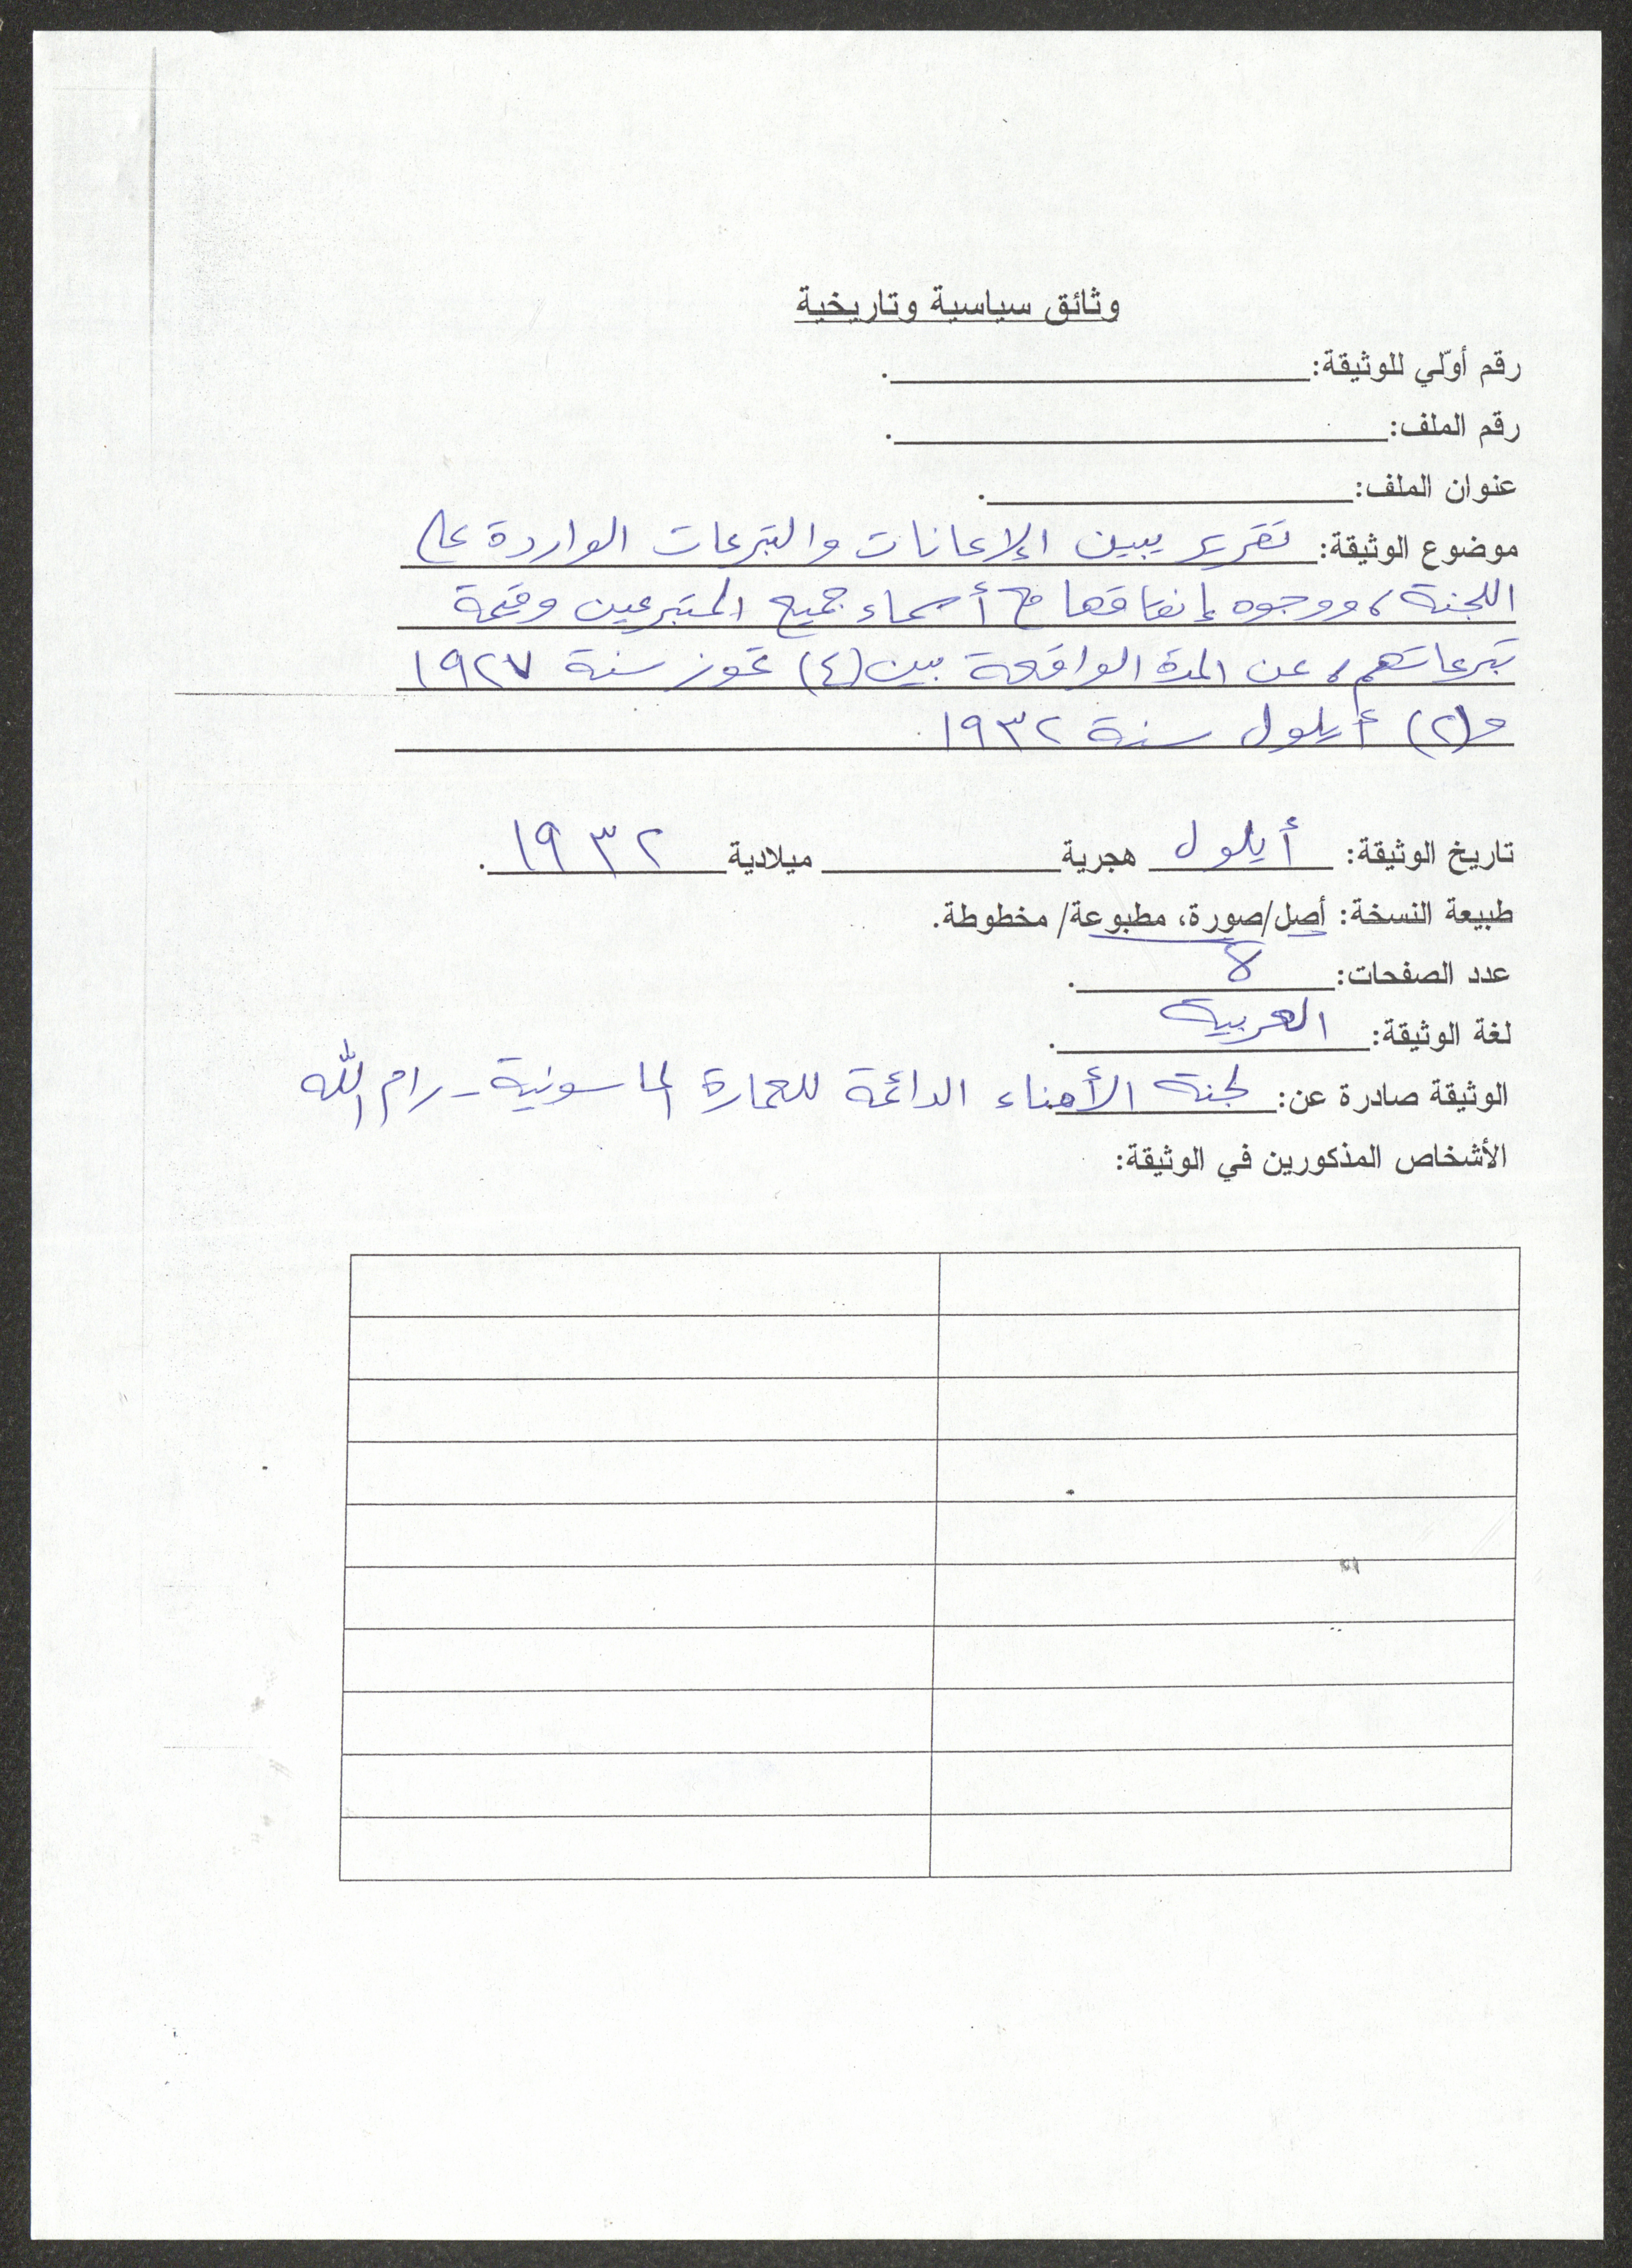 وثائق سياسية وتاريخية
رقم أوّلي للوثيقة: ____________.
رقم الملف: ____________.
عنوان الملف: ____________.
موضوع الوثيقة: تقرير يبين الإعانات والتبرعات الواردة على
اللجنة، ووجوه إنفاقها مع أسماء جميع المتبرعين وقيمة
تبرعاتهم، عن المدة الواقعة بين (٤) تموز سنة ١٩٢٧
و(٢) أيلول سنة ١٩٣٢
تاريخ الوثيقة: أيلول هجرية ________ ميلادية ١٩٣٢.
طبيعة النسخة: أصل/صورة، مطبوعة/ مخطوطة.
عدد الصفحات: ____.
لغة الوثيقة: العربية.
الوثيقة صادرة عن: لجنة الأمناء الدائمة للعمارة الماسونية - رام الله
الأشخاص المذكورين في الوثيقة: